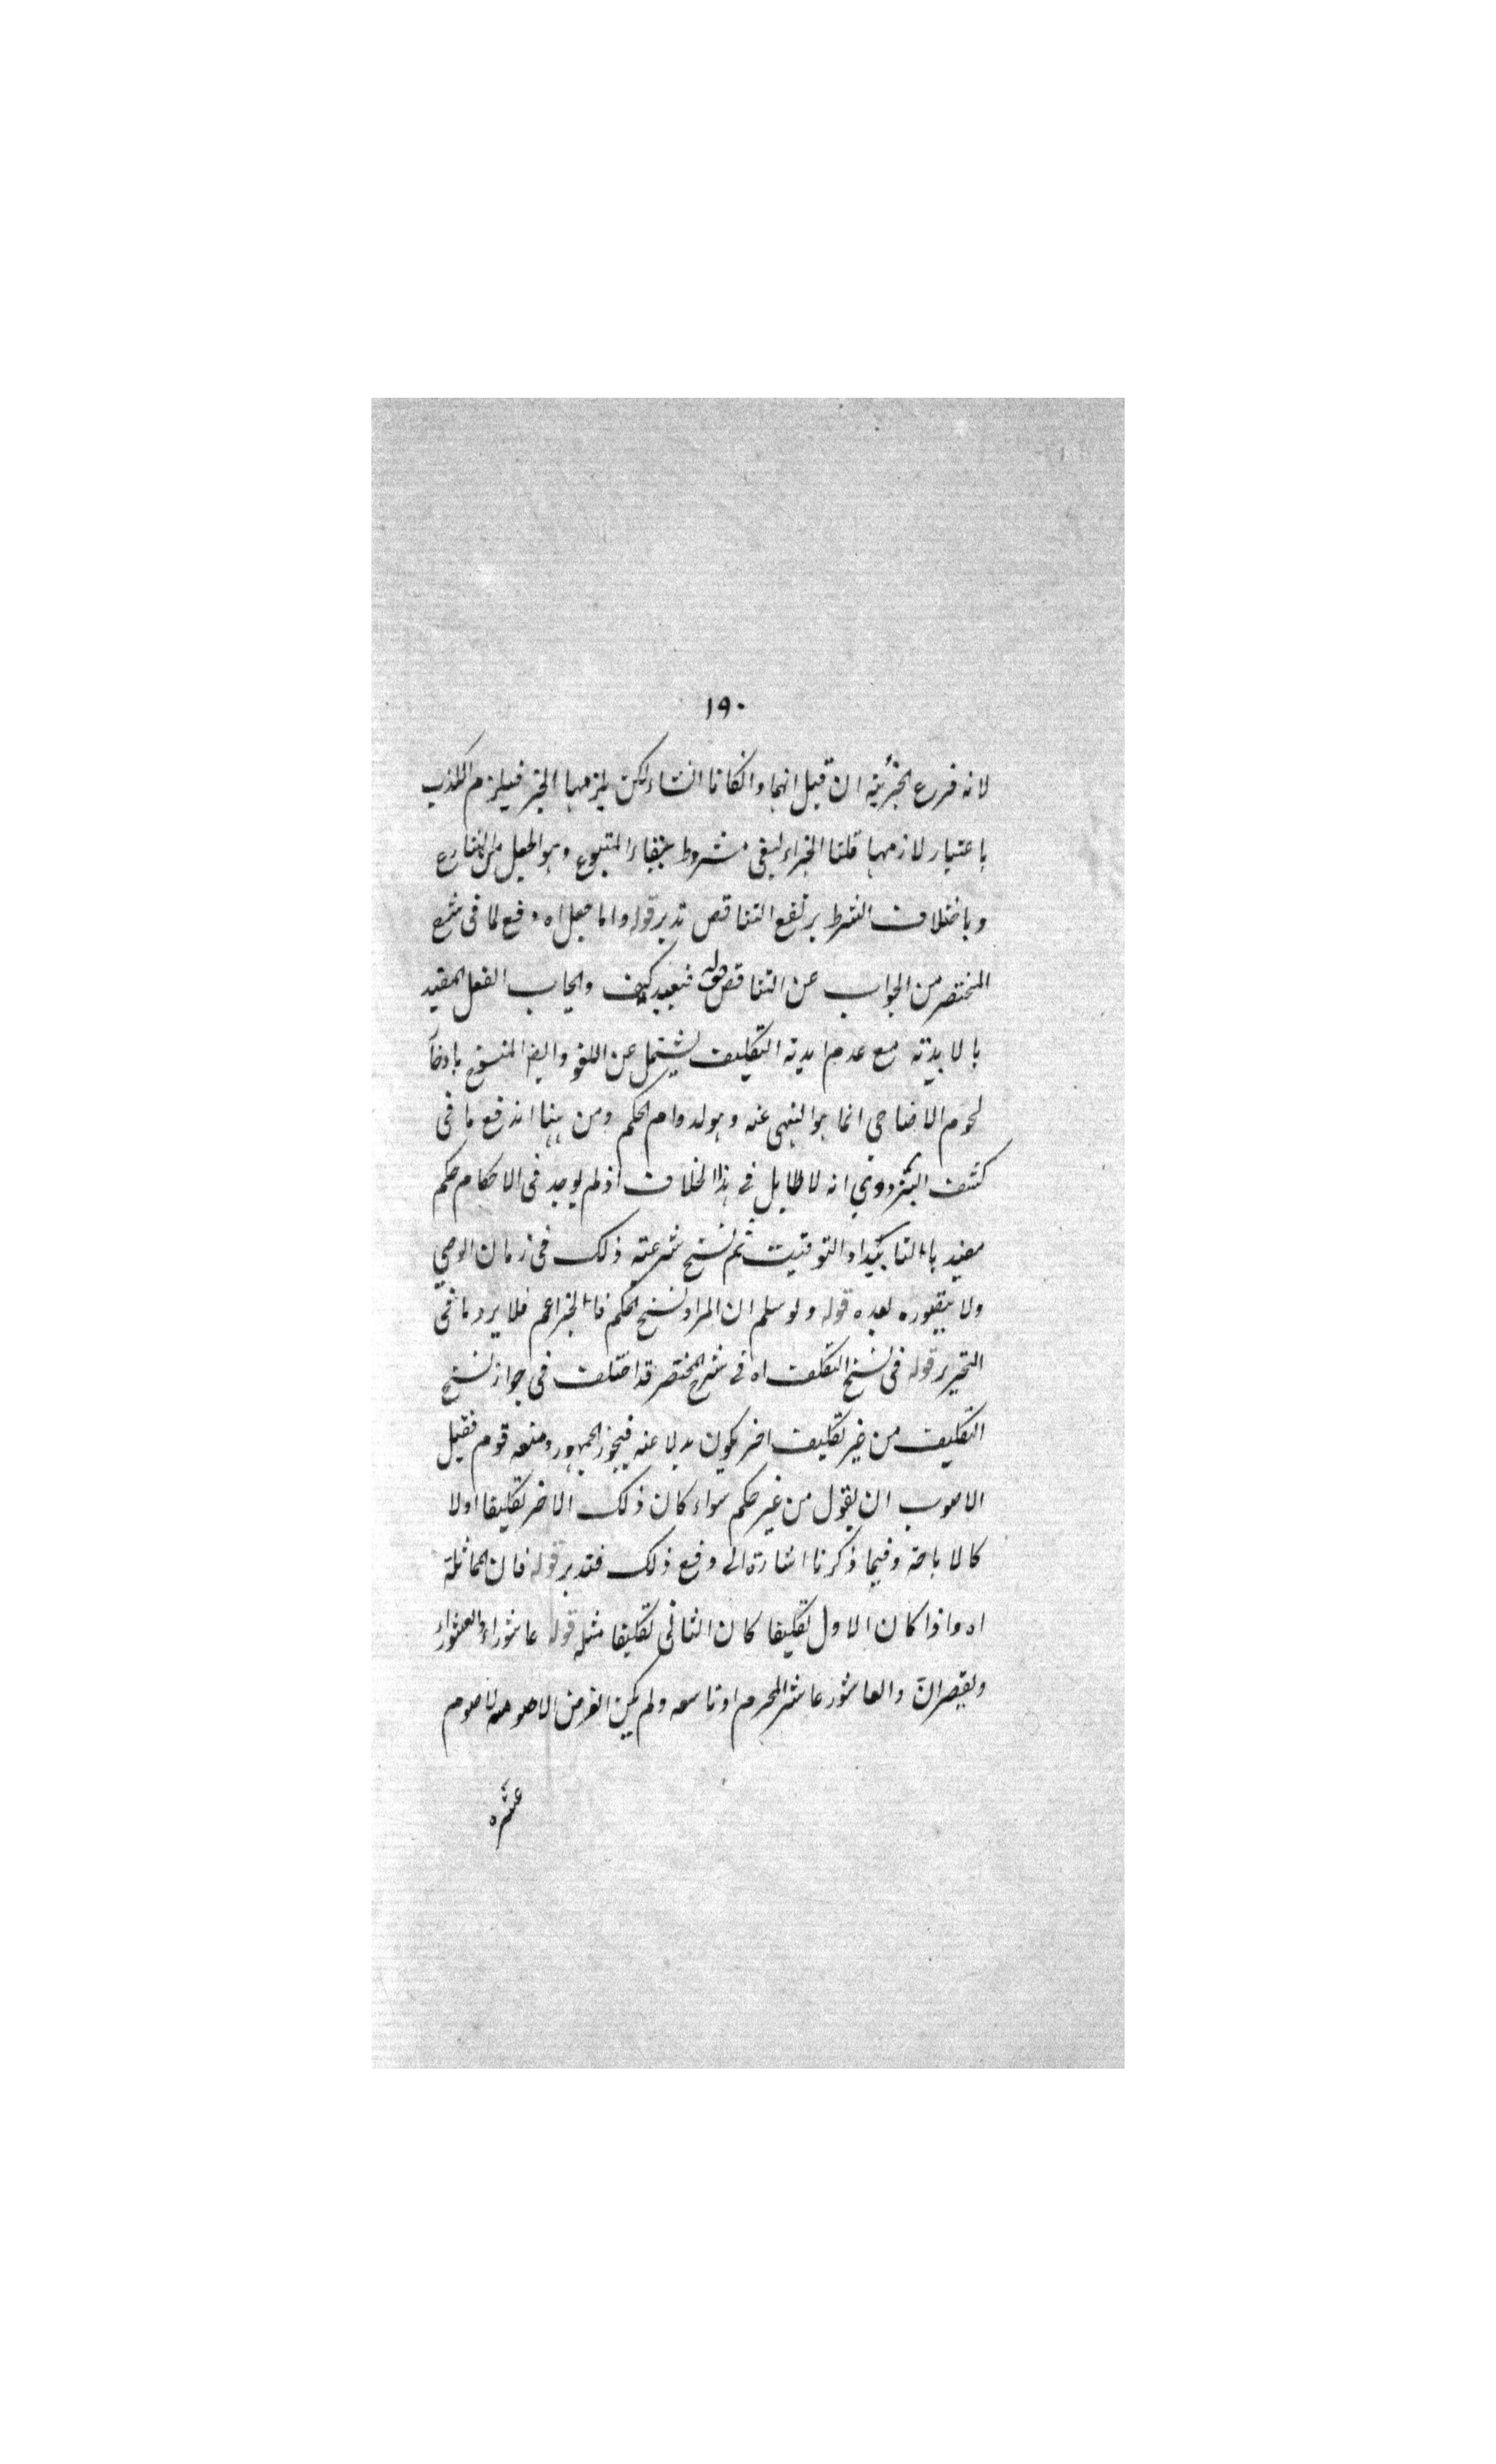 ١٩٠
لانه فرع الخبرية ان قيل انهما وانكانا انشاء لكن يلزمهما الخبر فيلزم الكذب
باعتبار لازمهما قلنا الخبر مشروط ببقاء المتبوع وهو الجعل من الشارع
وباختلاف الشرط يرتفع التناقض تدبر قوله واما جعل اه دفع لما فى شرح
المختصر من الجواب عن التناقض قوله فبعيد كيف وايجاب الفعل المقيد
بالابدية مع عدم ابدية التكليف يشتمل عن اللغو وايضا المنسوخ بادخار
لحوم الاضاحى انما هو النهى عنه وهو لدوام الحكم ومن هنا اندفع ما فى
كشف البزدوي انه لا طايل في هذا الخلاف اذ لم يوجد فى الاحكام حكم
مقيد بالتابيد او التوقيت ثم نسخ شرعيته ذلك فى زمان الوحي
ولا يتصوره بعده قوله ولو سلم ان المراد نسخ الحكم فالخبر اعم فلا يرد ما فى
التحرير قوله فى نسخ التكليف اه فى شرح المختصر قد اختلف فى جواز نسخ
التكليف من غير تكليف اخر يكون بدلا عنه فيجوز الجمهور ومنعه قوم فقيل
الاصوب ان يقول من غير حكم سواء كان ذلك الاخر تكليفا اولا
كالاباحة وفيما ذكرنا اشارة الى دفع ذلك فتدبر قوله فان المماثلة
اه واذا كان الاول تكليفا كان الثانى تكليفا مثله قوله عاشوراء والعشوراء
ويقصران والعاشور عاشر المحرم او تاسعه ولم يكن الفرض الا صومه لا صوم
عشره